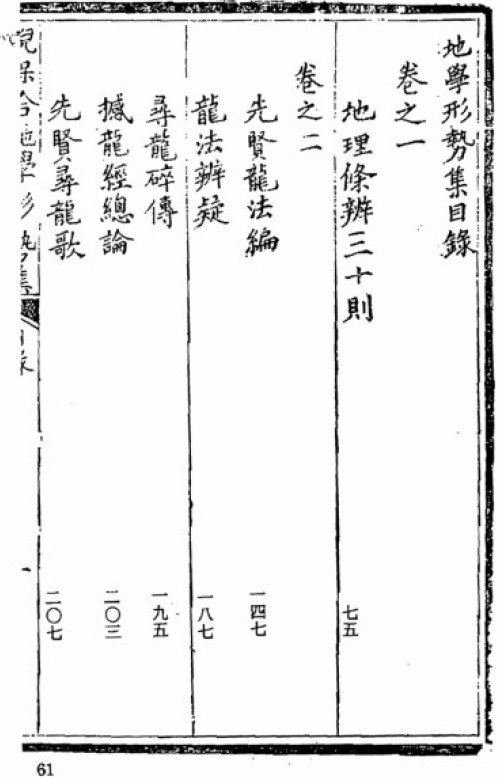 地學形勢集目錄
卷之一
地理條辨三十則 七五
卷之二
先賢龍法編 一四七
龍法辨疑 一八七
尋龍碎傳 一九五
撼龍經總論 二〇三
先賢尋龍歌 二〇七
地學形勢集
61